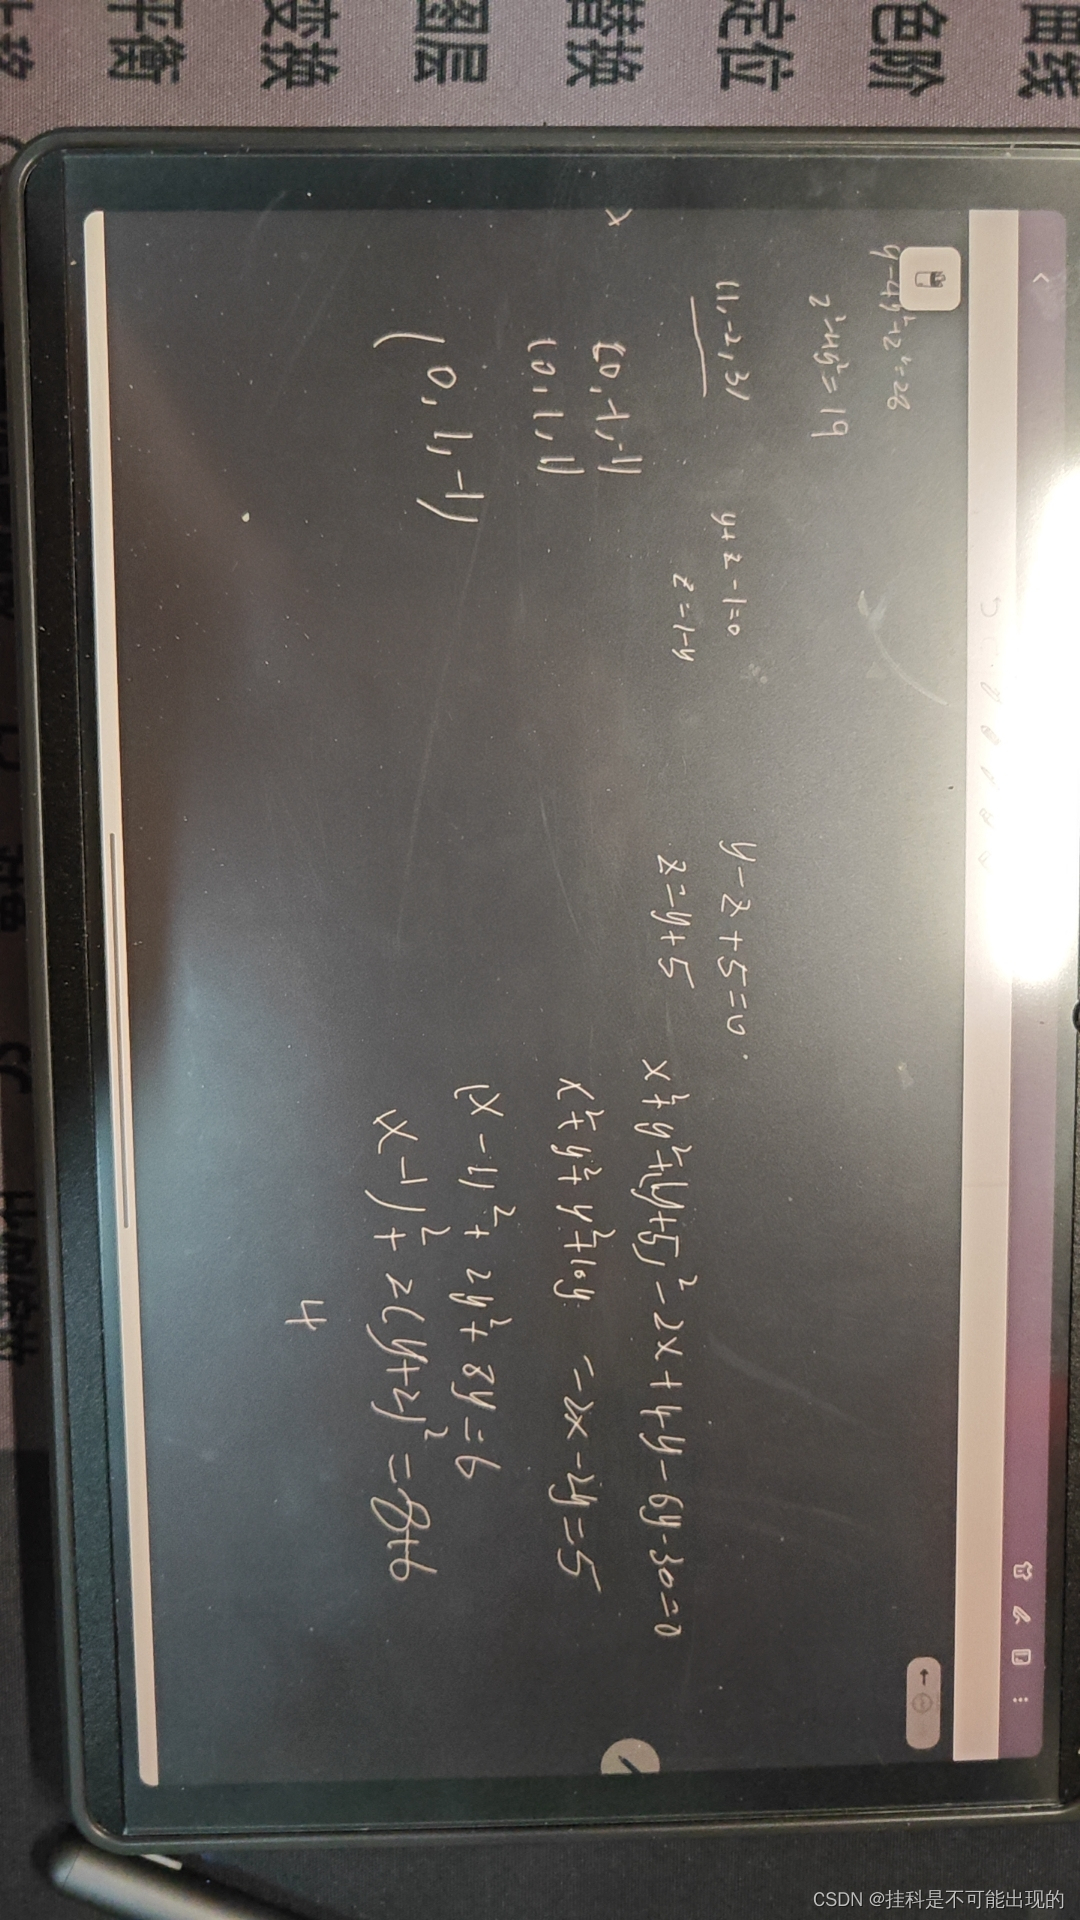 曲线
色阶
定位
替换
图层
变换
平衡
y-4y²+z²=28
z²-4y²=19
(1,-2,3)
y+z-1=0
z=1-y
y-z+5=0
z=y+5
x
(0,-1,-1)
(0,1,1)
(0,1,-1)
x²+y²+(y+5)²-2x+4y-6y-30=0
x²+y²+y²+10y =-2x-2y=5
(x-1)²+2y²+8y=6
(x-1)²+2(y+2)²=8+6
4
CSDN @挂科是不可能出现的